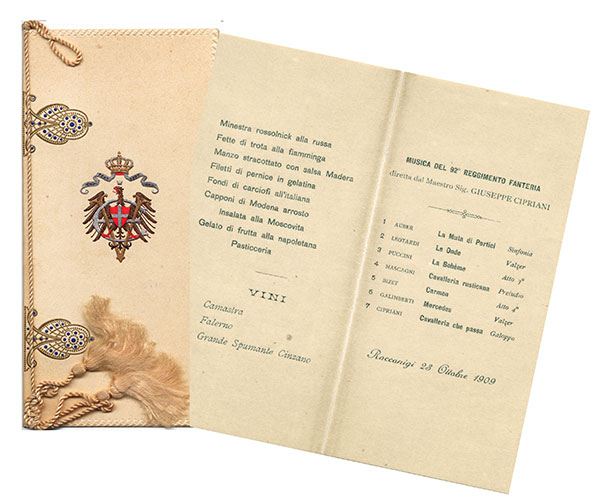 Minestra rossolnick alla russa
Fette di trota alla fiamminga
Manzo stracottato con salsa Madera
Filetti di pernice in gelatina
Fondi di carciofi all'italiana
Capponi di Modena arrosto
Insalata alla Moscovita
Gelato di frutta alla napoletana
Pasticceria
VINI
Camastra
Falerno
Grande Spumante Cinzano
MUSICA DEL 92º REGGIMENTO FANTERIA
diretta dal Maestro Sig. GIUSEPPE CIPRIANI
1 AUBER La Muta di Portici Sinfonia
2 LEOTARDI Le Dode Valzer
3 PUCCINI La Bohème Atto 3º
4 MASCAGNI Cavalleria rusticana Preludio
5 BIZET Carmen Atto 4º
6 GALIMBERTI Mercedes Valzer
7 CIPRIANI Cavalleria che passa Galoppo
Racconigi 23 Ottobre 1909